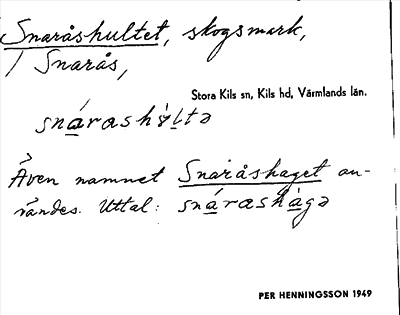 Snaråshultet, skogsmark,
/ Snarås,
Stora Kils sn, Kils hd, Värmlands län.
snárashùltə
Även namnet Snaråshaget an-
vändes. Uttal: snárashàgə
PER HENNINGSSON 1949